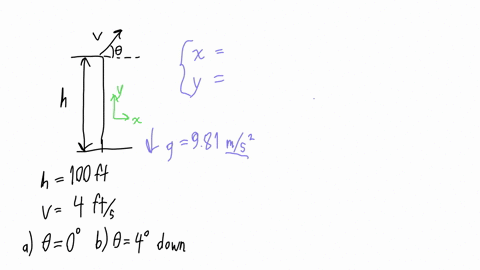 v
θ
h
y
x
x =
y =
g = 9.81 m/s²
h = 100 ft
v = 4 ft/s
a) θ = 0° b) θ = 4° down